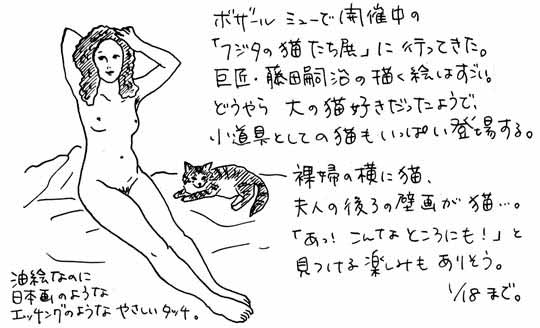 ボザール ミューで開催中の
「フジタの猫たち展」に行ってきた。
巨匠・藤田嗣治の描く絵はすごい。
どうやら 大の猫好きだったようで、
小道具としての猫もいっぱい登場する。
裸婦の横に猫、
夫人の後ろの壁画が猫…。
「あっ!こんなところにも!」と
見つける楽しみもありそう。
1/18まで。
油絵なのに
日本画のような
エッチングのような やさしいタッチ。